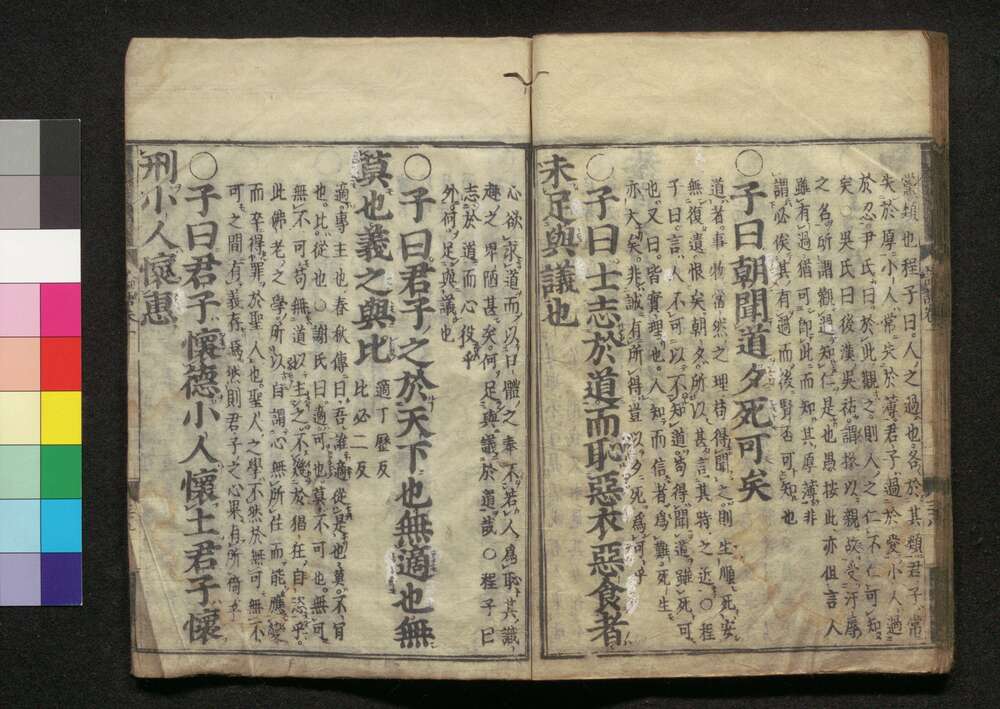 黨類也程子曰人之過也各於其類君子常
失於厚小人常失於薄君子過於愛小人過
於忍尹氏曰於此觀之則人之仁不仁可知
矣○吳氏曰後漢吳祐謂掾以親故受汙辱
之名所謂觀過知仁是也愚按此亦但言人
雖有過猶可即此而知其厚薄非
謂必俟其有過而後賢否可知也
○子曰朝聞道夕死可矣
道者事物當然之理苟得聞之則生順死安
無復遺恨矣朝夕所以甚言其時之近○程
子曰言人不可以不知道苟得聞道雖死可
也又曰皆實理也人知而信者爲難死生
亦大矣非誠有所得豈以夕死爲可乎
○子曰士志於道而恥惡衣惡食者
未足與議也
心欲求道而以口體之奉不若人爲恥其識
趣之卑陋甚矣何足與議於道哉○程子曰
志於道而心役乎
外何足與議也
○子曰君子之於天下也無適也無
莫也義之與比
適丁歷反
比必二反
適專主也春秋傳曰吾誰適從是也莫不肯
也比從也○謝氏曰適可也莫不可也無可
無不可苟無道以主之不幾於猖狂自恣乎
此佛老之學所以自謂心無所住而能應變
而卒得罪於聖人也聖人之學不然於無可無不
可之間有義存焉然則君子之心果有所倚乎
○子曰君子懷德小人懷土君子懷
刑小人懷惠